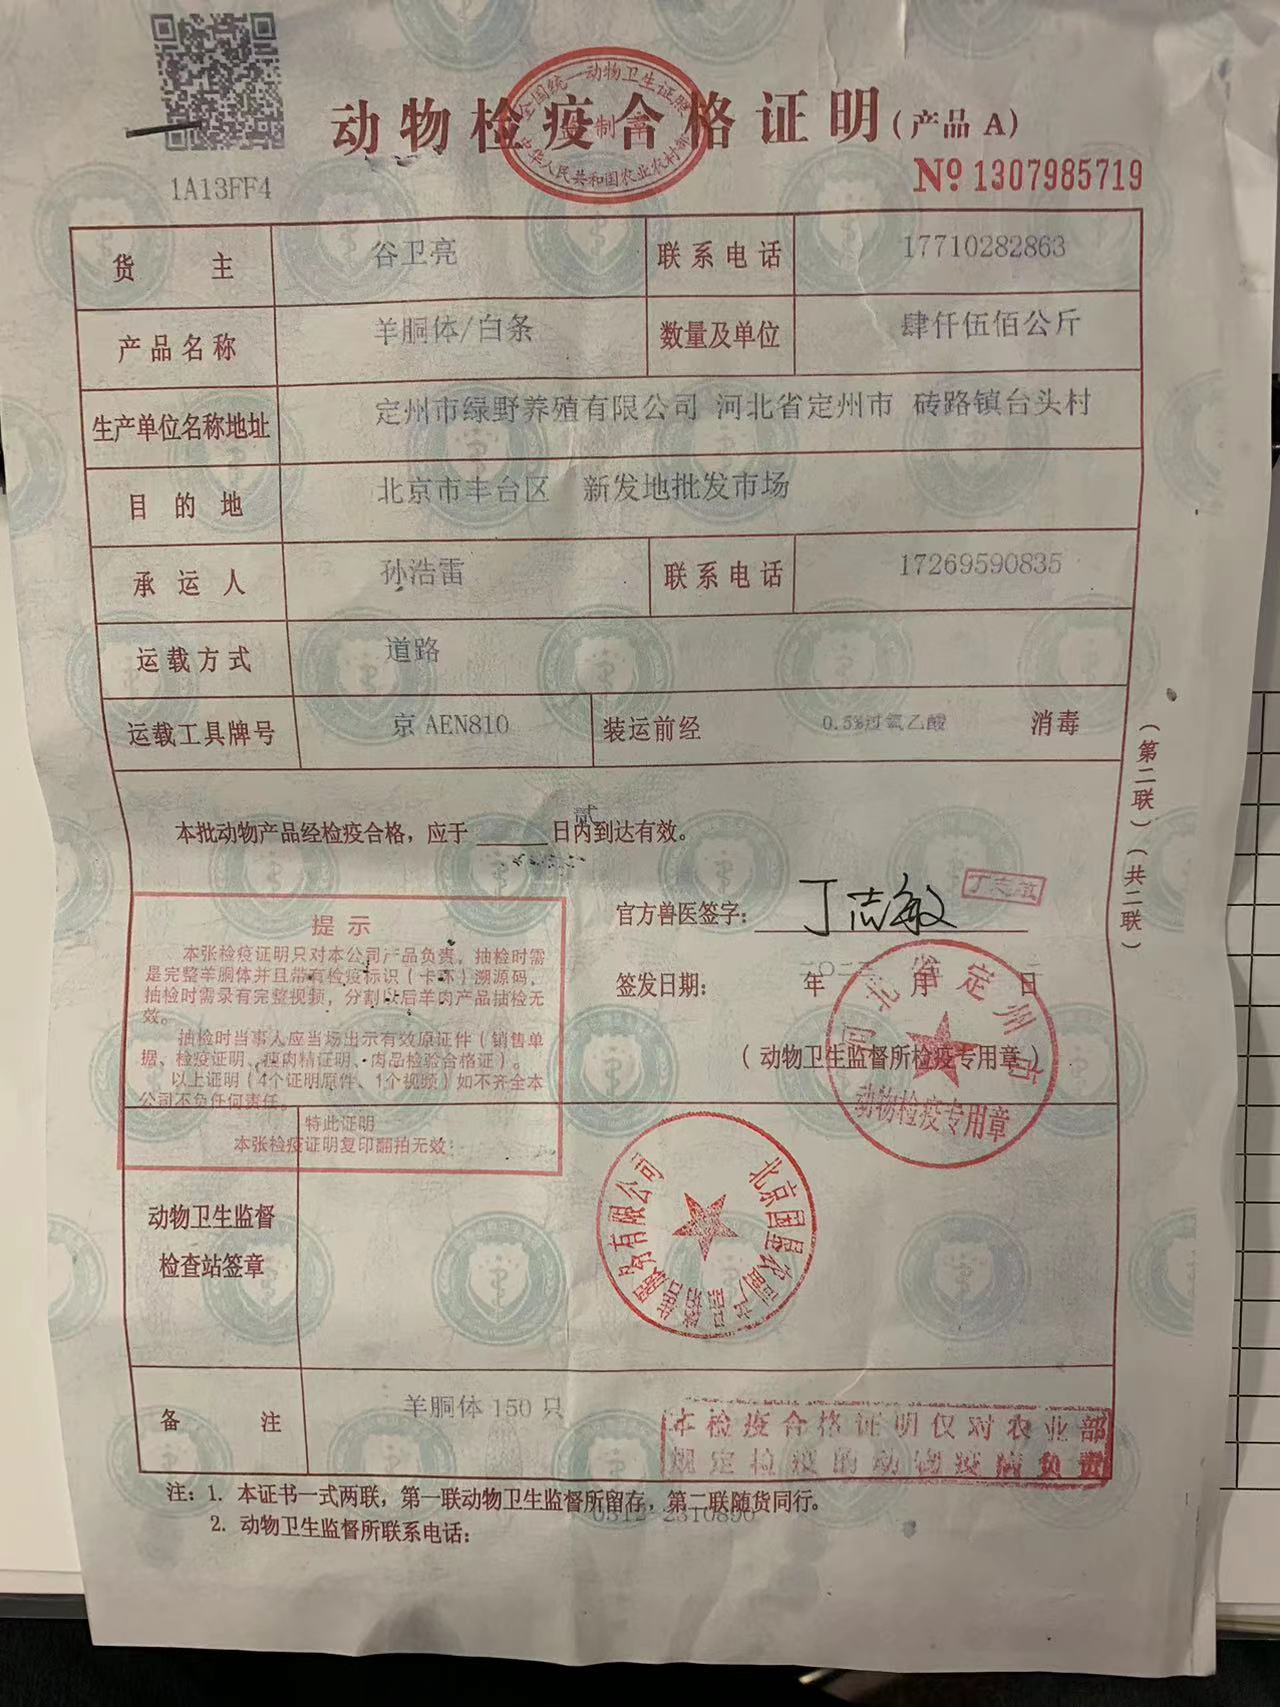 全国统一动物卫生证照
监制章
中华人民共和国农业农村部
动物检疫合格证明(产品 A)
1A13FF4
№ 1307985719
货主 谷卫亮 联系电话 17710282863
产品名称 羊胴体/白条 数量及单位 肆仟伍佰公斤
生产单位名称地址 定州市绿野养殖有限公司 河北省定州市 砖路镇台头村
目的地 北京市丰台区 新发地批发市场
承运人 孙浩雷 联系电话 17269590835
运载方式 道路
运载工具牌号 京AEN810 装运前经 0.5%过氧乙酸 消毒
本批动物产品经检疫合格，应于 贰 日内到达有效。
官方兽医签字： 丁志敏
丁志敏
签发日期： 年 月 日
(动物卫生监督所检疫专用章)
河北省定州市
动物检疫专用章
提示
本张检疫证明只对本公司产品负责，抽检时需
是完整羊胴体并且带有检疫标识（卡环）溯源码，
抽检时需录有完整视频，分割以后羊肉产品抽检无
效。
抽检时当事人应当场出示有效原证件（销售单
据、检疫证明、瘦肉精证明、肉品检验合格证）。
以上证明（4个证明原件、1个视频）如不齐全本
公司不负任何责任。
特此证明
本张检疫证明复印翻拍无效
动物卫生监督
检查站签章
备注 羊胴体150只
本检疫合格证明仅对农业部
规定检疫的动物疫病负责
注：1. 本证书一式两联，第一联动物卫生监督所留存，第二联随货同行。
2. 动物卫生监督所联系电话： 0312-2310890
(第二联)(共二联)